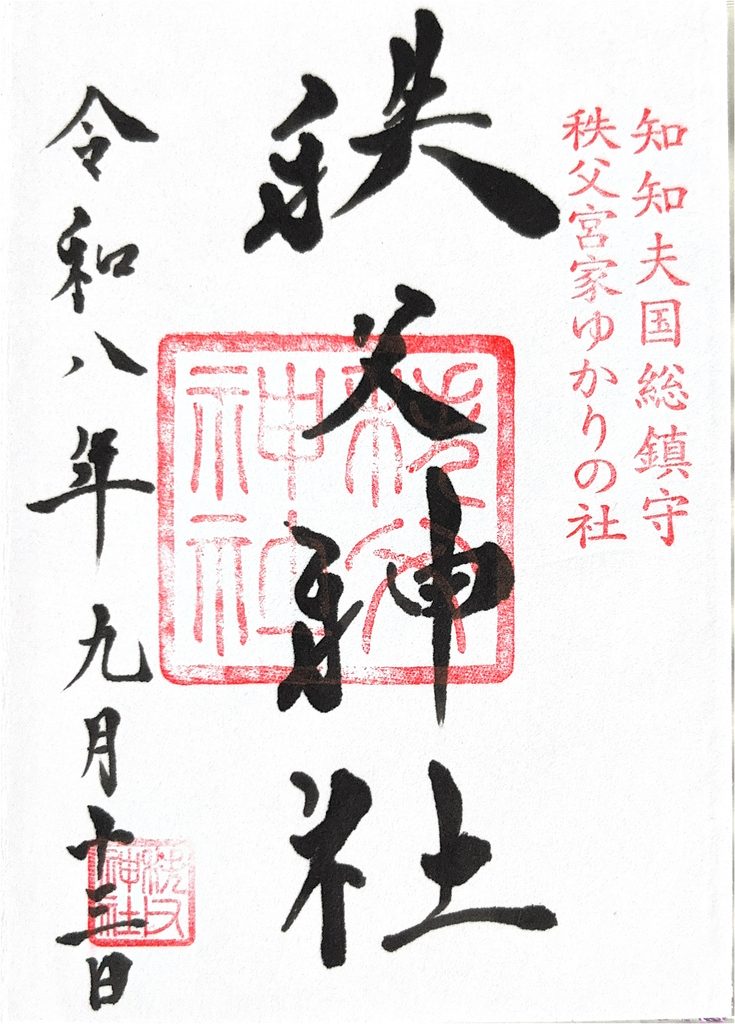 知知夫国総鎮守
秩父宮家ゆかりの社
秩父神社
秩父神社
令和八年九月十三日
秩父神社